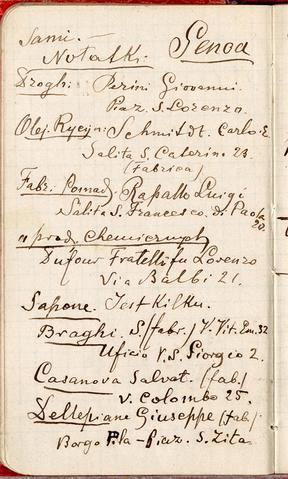 Sami.
Notatki: Genoa
Drogh: Perini Giovanni
Piaz. S. Lorenzo.
Olej Rycyn: Schmidt. Carlo E.
Salita S. Caterini 23.
(Fabrica)
Fabr. Pomad. Rapallo Luigi
Salita S. Francesco. di Paola
20.
" prod. Chemicznych
Dufour Fratelli fu Lorenzo
Via Balbi 21.
Sapone. Jest Kilku.
Braghi. S/fabr.) V. Vit. Em. 32
Uficio V. S. Giorgio 2.
Casanova Salvat. (fab.)
V. Colombo 25.
Dellepiane Giuseppe (fab.)
Borgo Pila - Piaz. S. Zita.